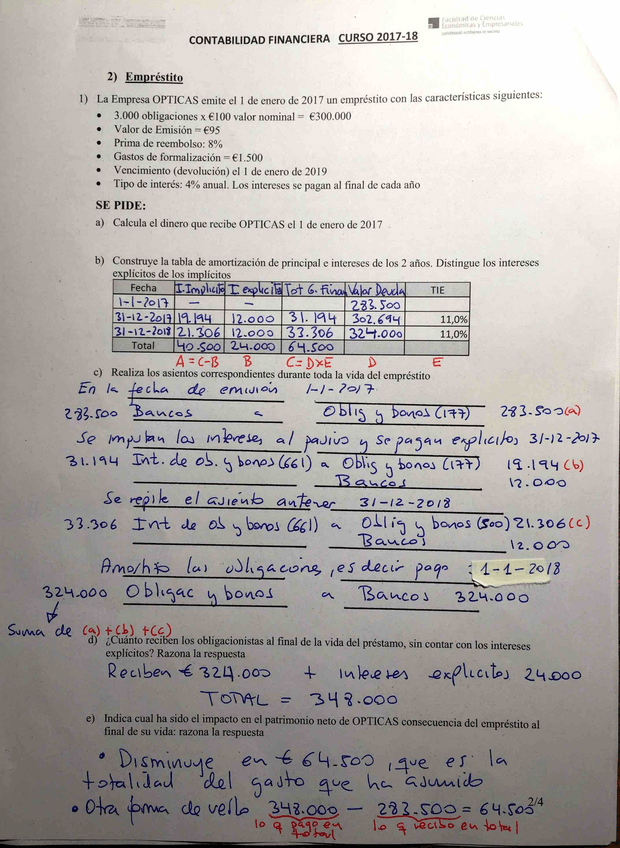 Facultad de Ciencias
Económicas y Empresariales
CONTABILIDAD FINANCIERA CURSO 2017-18
2) Empréstito
1) La Empresa OPTICAS emite el 1 de enero de 2017 un empréstito con las características siguientes:
• 3.000 obligaciones x €100 valor nominal = €300.000
• Valor de Emisión = €95
• Prima de reembolso: 8%
• Gastos de formalización = €1.500
• Vencimiento (devolución) el 1 de enero de 2019
• Tipo de interés: 4% anual. Los intereses se pagan al final de cada año
SE PIDE:
a) Calcula el dinero que recibe OPTICAS el 1 de enero de 2017
b) Construye la tabla de amortización de principal e intereses de los 2 años. Distingue los intereses
explícitos de los implícitos
Fecha I. Implícito I explicito Tot G. Finan Valor Deuda TIE
1-1-2017 — — 283.500
31-12-2017 19.194 12.000 31.194 302.694 11,0%
31-12-2018 21.306 12.000 33.306 324.000 11,0%
Total 40.500 24.000 64.500
A = C-B B C = D×E D E
c) Realiza los asientos correspondientes durante toda la vida del empréstito
En la fecha de emisión 1-1-2017
283.500 Bancos a Oblig y bonos (177) 283.500 (a)
Se imputan los intereses al pasivo y se pagan explicitos 31-12-2017
31.194 Int. de ob. y bonos (661) a Oblig y bonos (177) 19.194 (b)
Bancos 12.000
Se repite el asiento anterior 31-12-2018
33.306 Int de ob y bonos (661) a Oblig y bonos (500) 21.306 (c)
Bancos 12.000
Amortizo las obligaciones, es decir pago : 1-1-2018
324.000 Obligac y bonos a Bancos 324.000
Suma de (a) + (b) + (c)
d) ¿Cuánto reciben los obligacionistas al final de la vida del préstamo, sin contar con los intereses
explícitos? Razona la respuesta
Reciben € 324.000 + intereses explicitos 24.000
TOTAL = 348.000
e) Indica cual ha sido el impacto en el patrimonio neto de OPTICAS consecuencia del empréstito al
final de su vida: razona la respuesta
• Disminuye en € 64.500, que es la
totalidad del gasto que ha asumido
• Otra forma de verlo 348.000 — 283.500 = 64.500
lo q pago en total lo q recibo en total
2/4